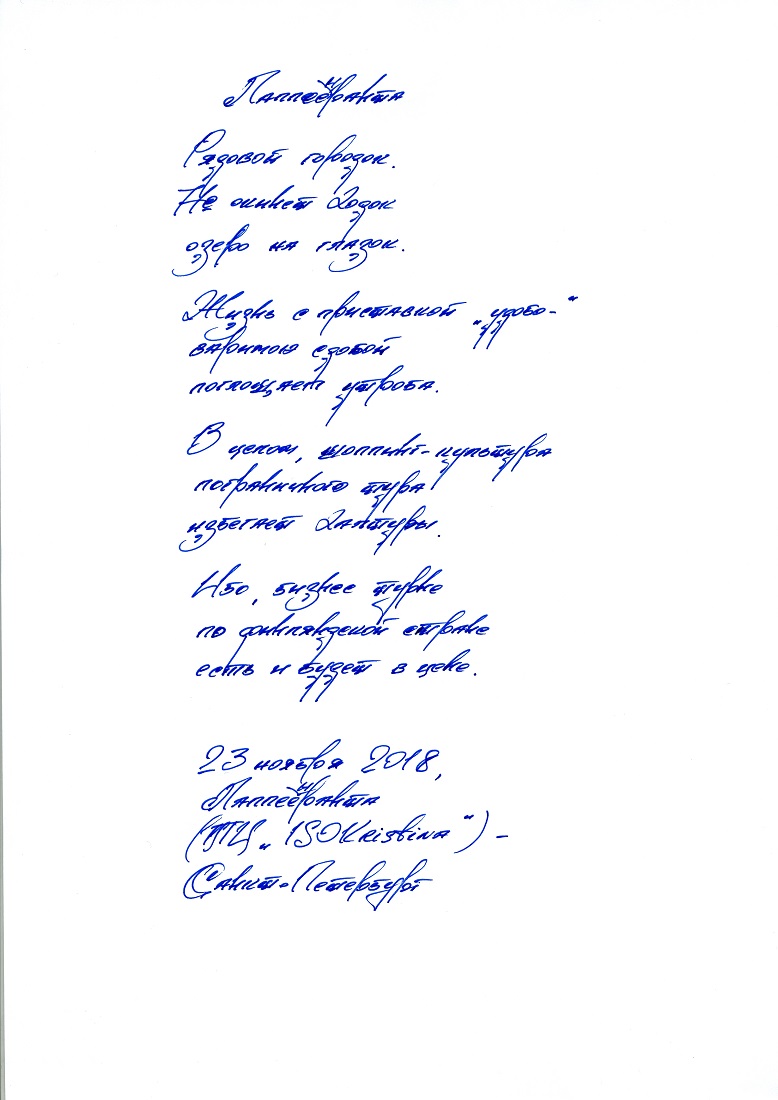 Лаппеенранта
Рядовой городок.
Не окинет ходок
озеро на глазок.
Жизнь с приставкой „удобо-“
варимою сдобой
поглощает утроба.
В целом, шоппинг-культура
пограничного тура
избегает халтуры.
Ибо, бизнес турне
по финляндской стране
есть и будет в цене.
23 ноября 2018,
Лаппеенранта
(ТЦ „ISOKristina“) –
Санкт-Петербург